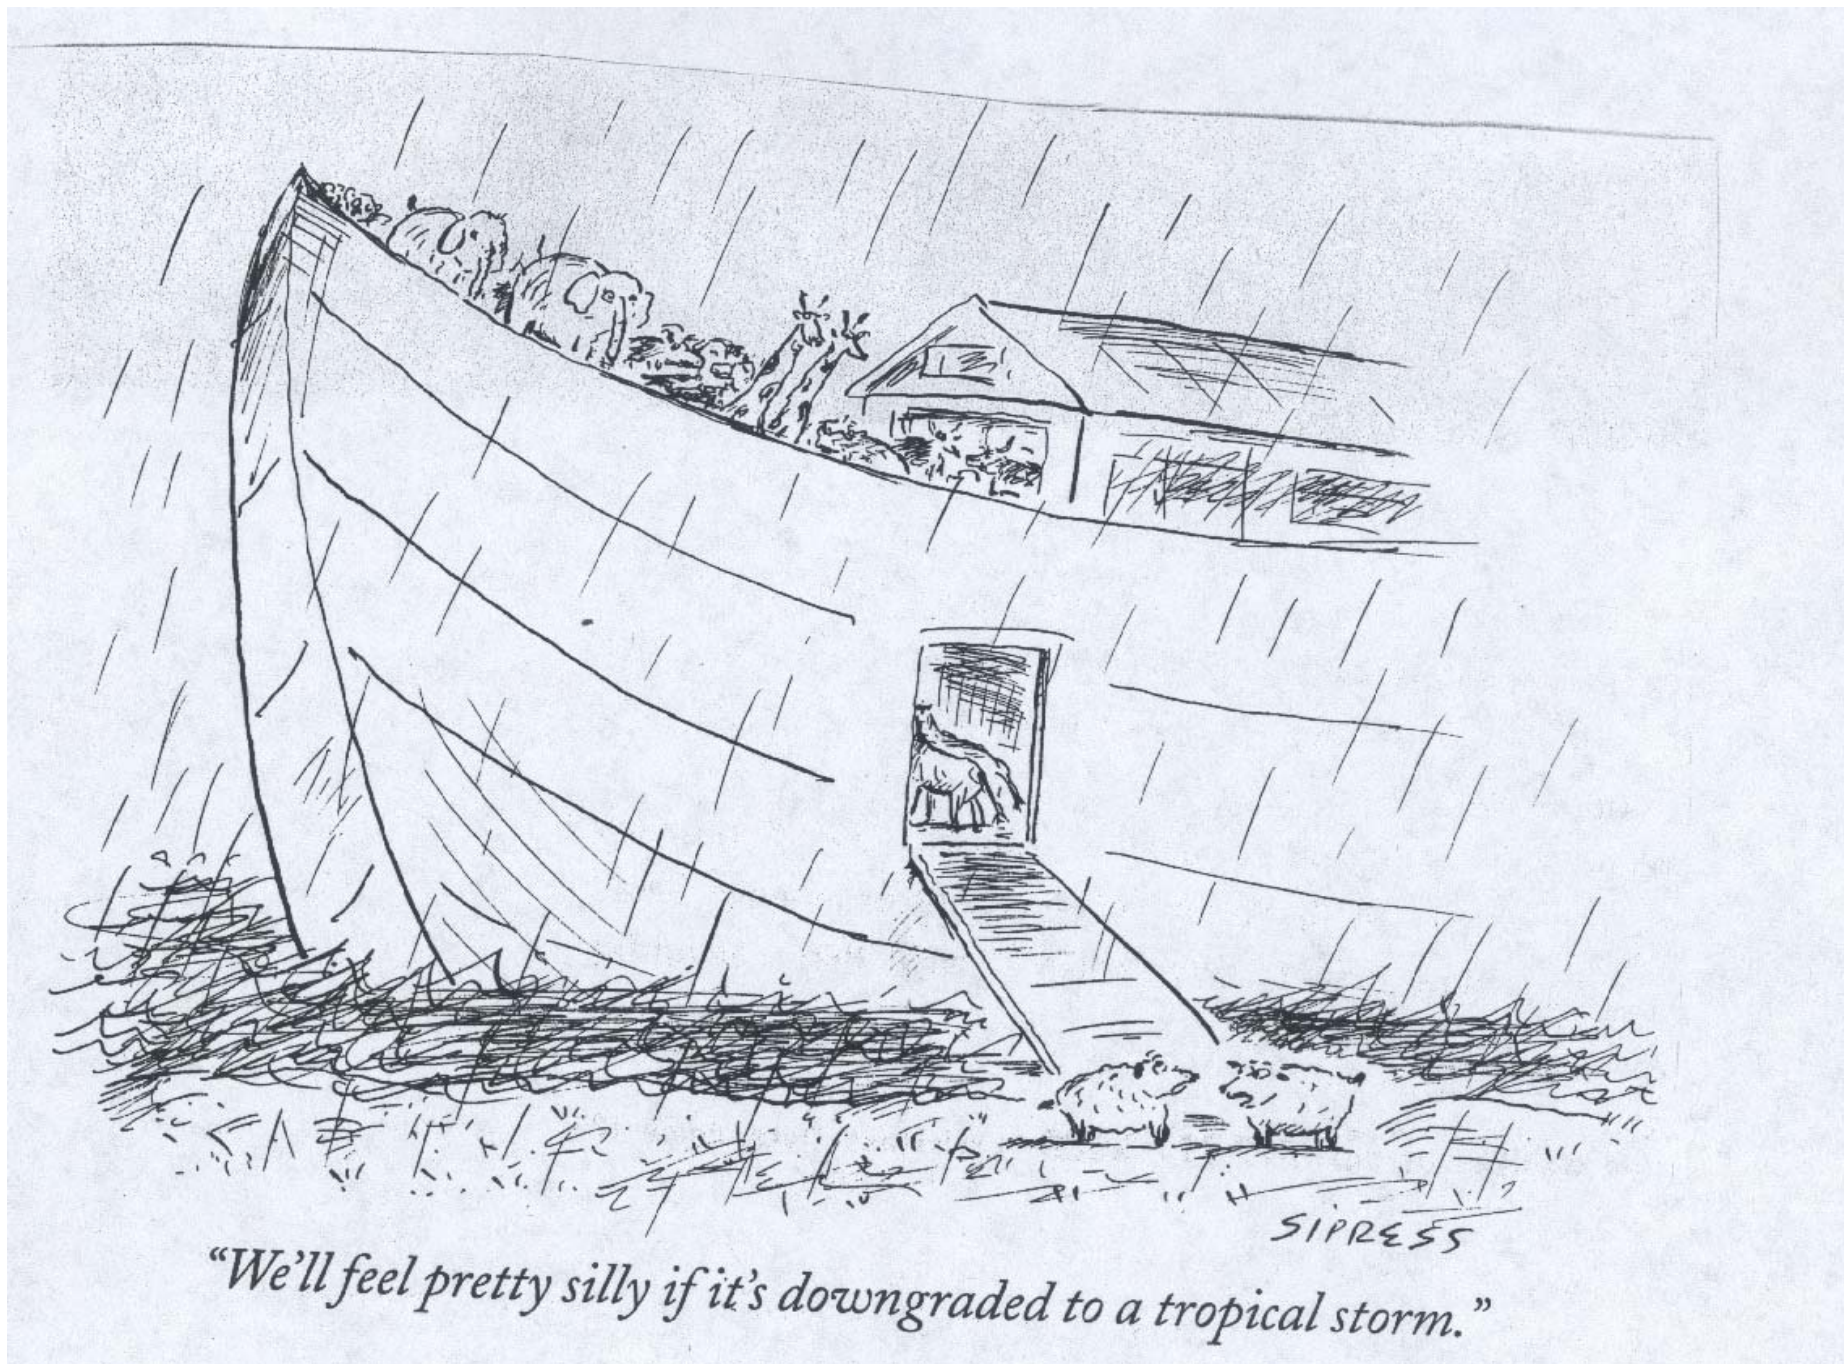 SIPRESS
“We’ll feel pretty silly if it’s downgraded to a tropical storm.”